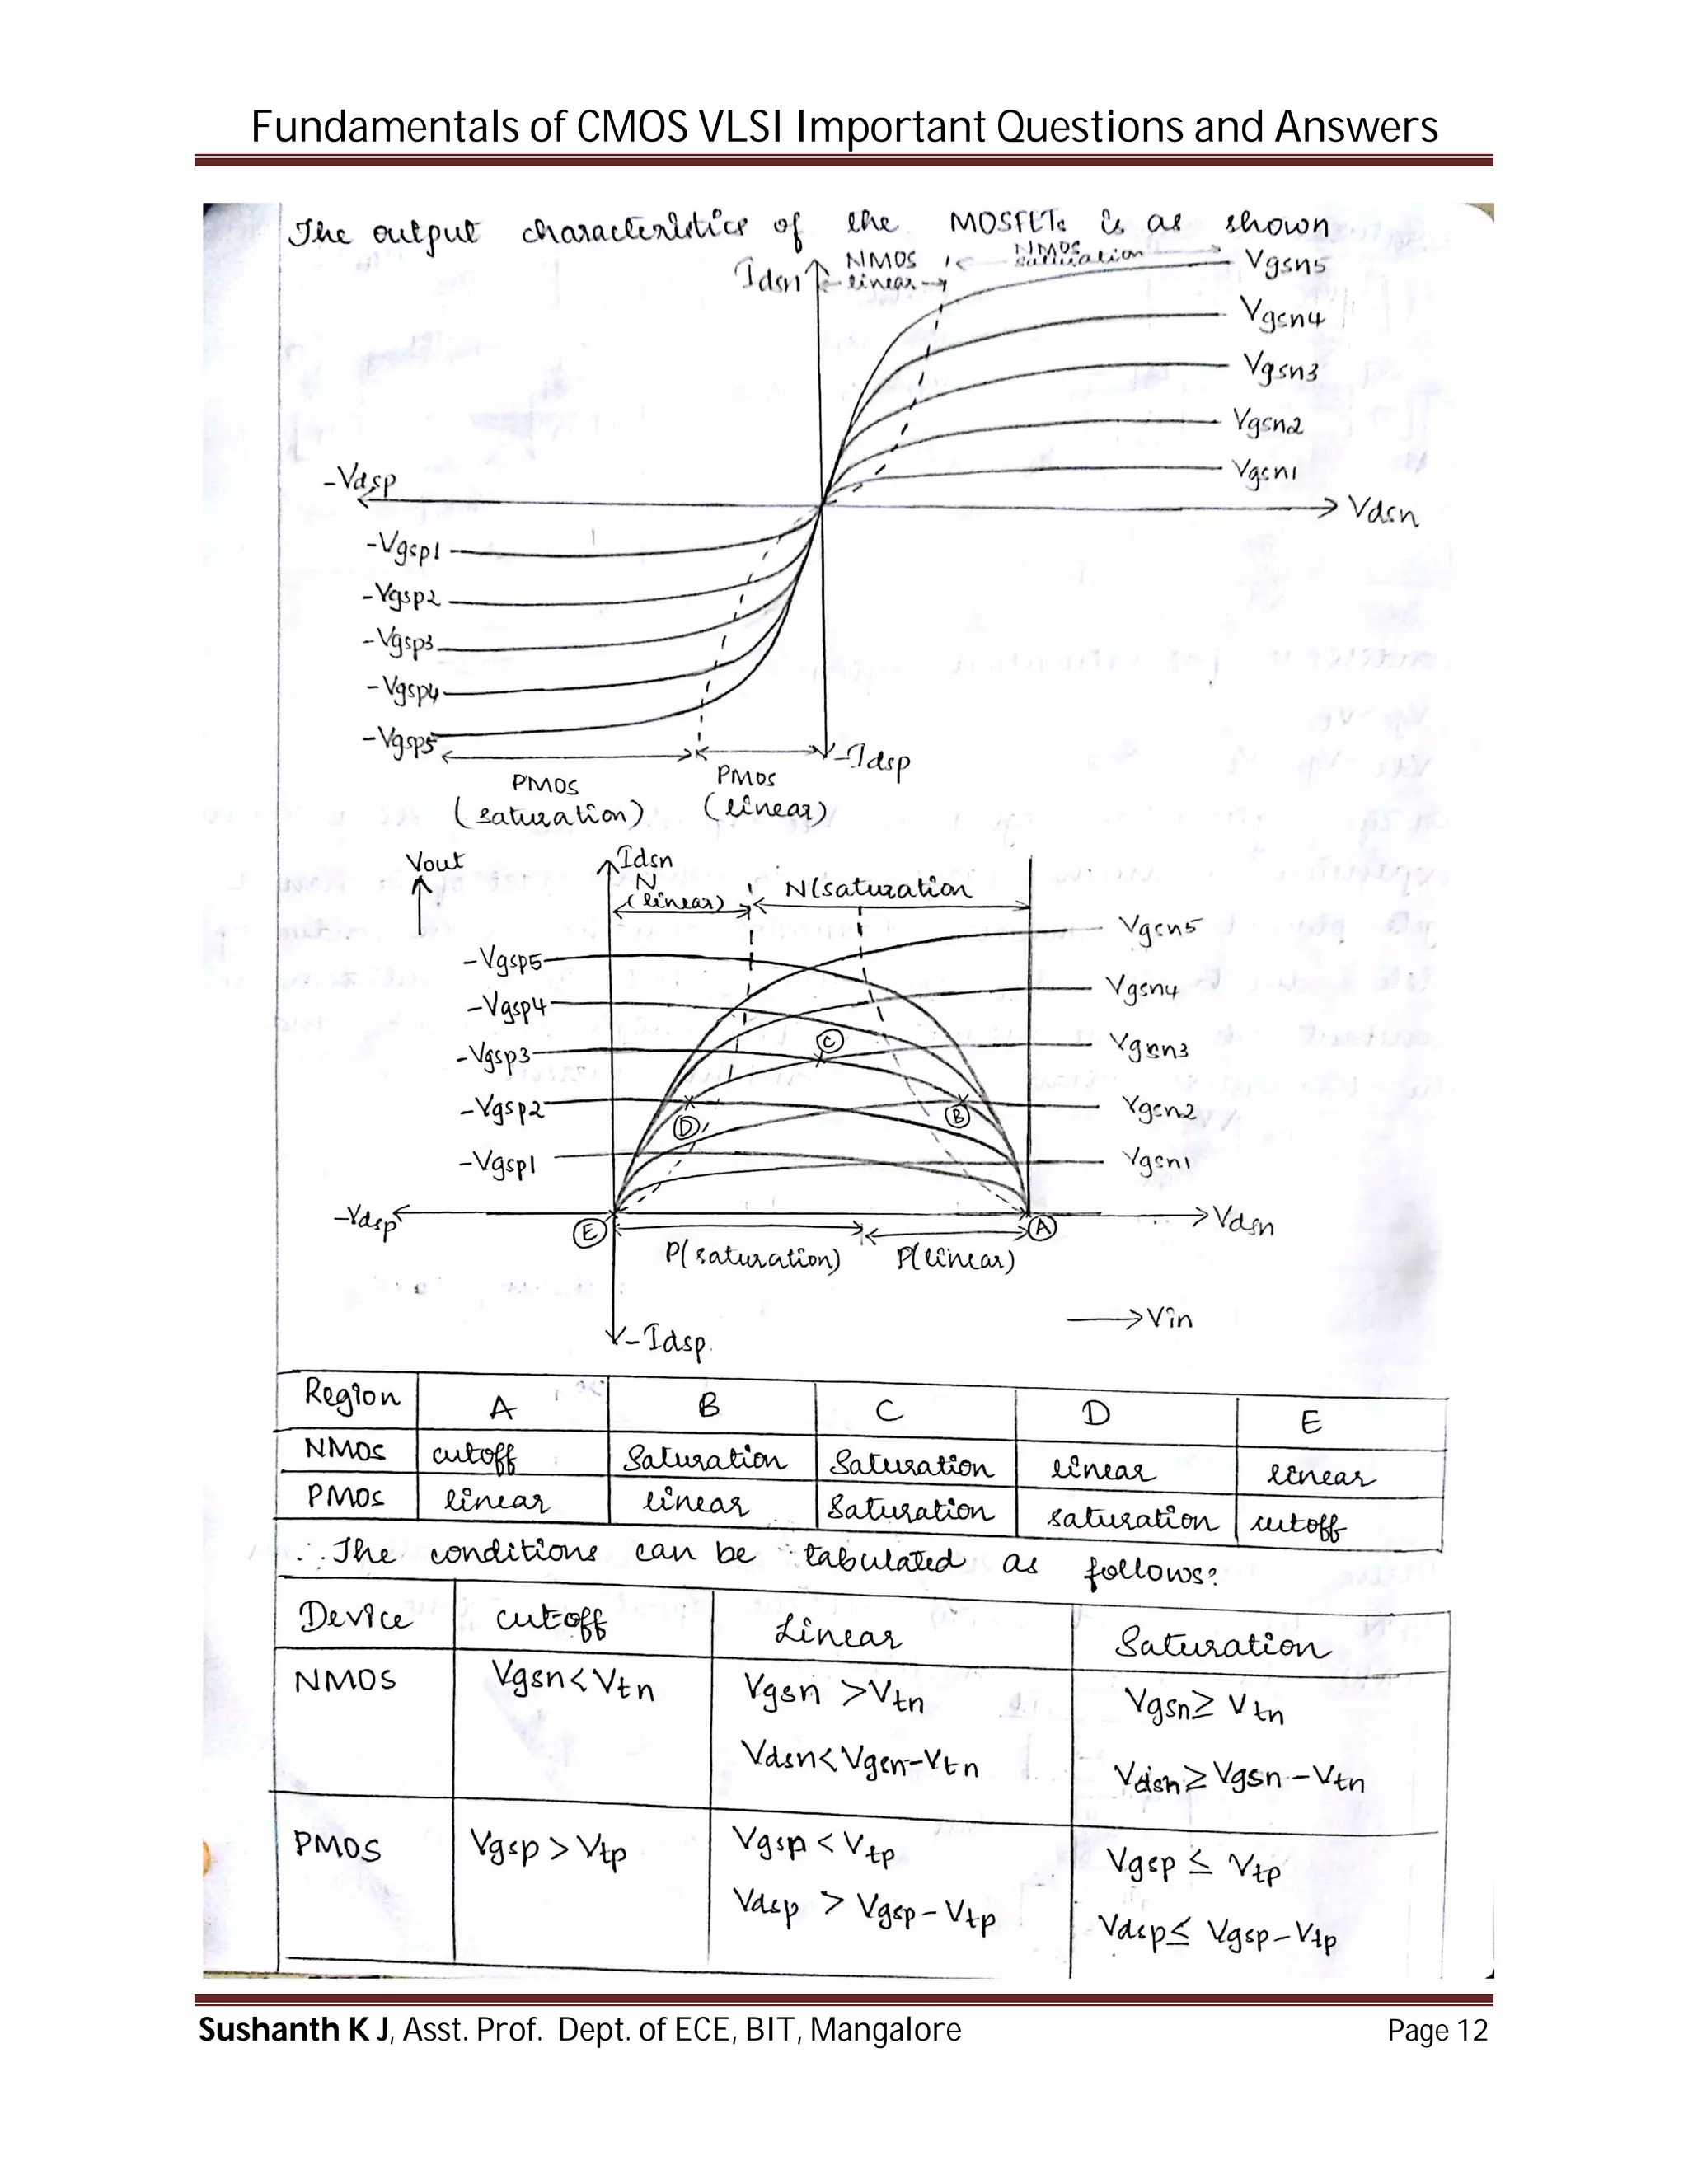 Fundamentals of CMOS VLSI Important Questions and Answers
The output characteristics of the MOSFETs is as shown
Idsn
NMOS linear
NMOS saturation
Vgsn5
Vgsn4
Vgsn3
Vgsn2
Vgsn1
-Vdsp
Vdsn
-Vgsp1
-Vgsp2
-Vgsp3
-Vgsp4
-Vgsp5
-Idsp
PMOS
(saturation)
PMOS
(linear)
Vout
Idsn
N
(linear)
N(saturation
-Vgsp5
Vgsn5
-Vgsp4
Vgsn4
C
-Vgsp3
Vgsn3
-Vgsp2
D
B
Vgsn2
-Vgsp1
Vgsn1
-Vdsp
E
A
Vdsn
P(saturation)
P(linear)
Vin
-Idsp
Region A B C D E
NMOS cutoff Saturation Saturation linear linear
PMOS linear linear Saturation saturation cutoff
∴ The conditions can be tabulated as follows:
Device cutoff Linear Saturation
NMOS Vgsn<Vtn Vgsn >Vtn Vgsn≥ Vtn
Vdsn<Vgsn-Vtn Vdsn≥Vgsn-Vtn
PMOS Vgsp > Vtp Vgsp < Vtp Vgsp ≤ Vtp
Vdsp > Vgsp - Vtp Vdsp≤ Vgsp-Vtp
Sushanth K J, Asst. Prof. Dept. of ECE, BIT, Mangalore Page 12